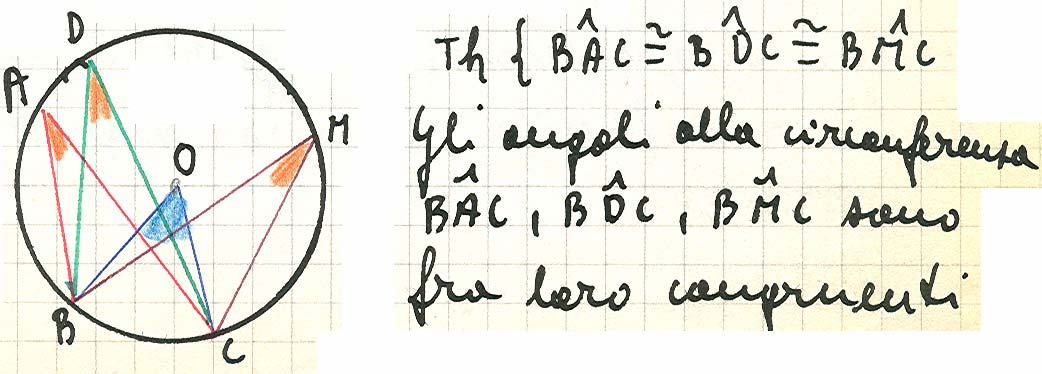 D
A
M
O
B
C
Th { BÂC ≅ BD̂C ≅ BM̂C
Gli angoli alla circonferenza
BÂC, BD̂C, BM̂C sono
fra loro congruenti